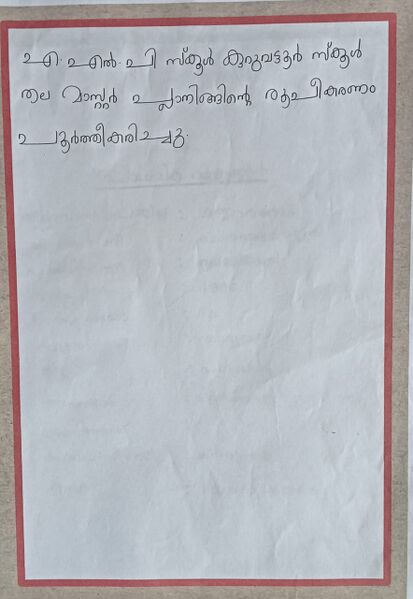 എ.എൽ.പി സ്കൂൾ കുറുവട്ടൂർ സ്കൂൾ
തല മാസ്റ്റർ പ്ലാനിങ്ങിന്റെ രൂപീകരണം
പൂർത്തീകരിച്ചു.